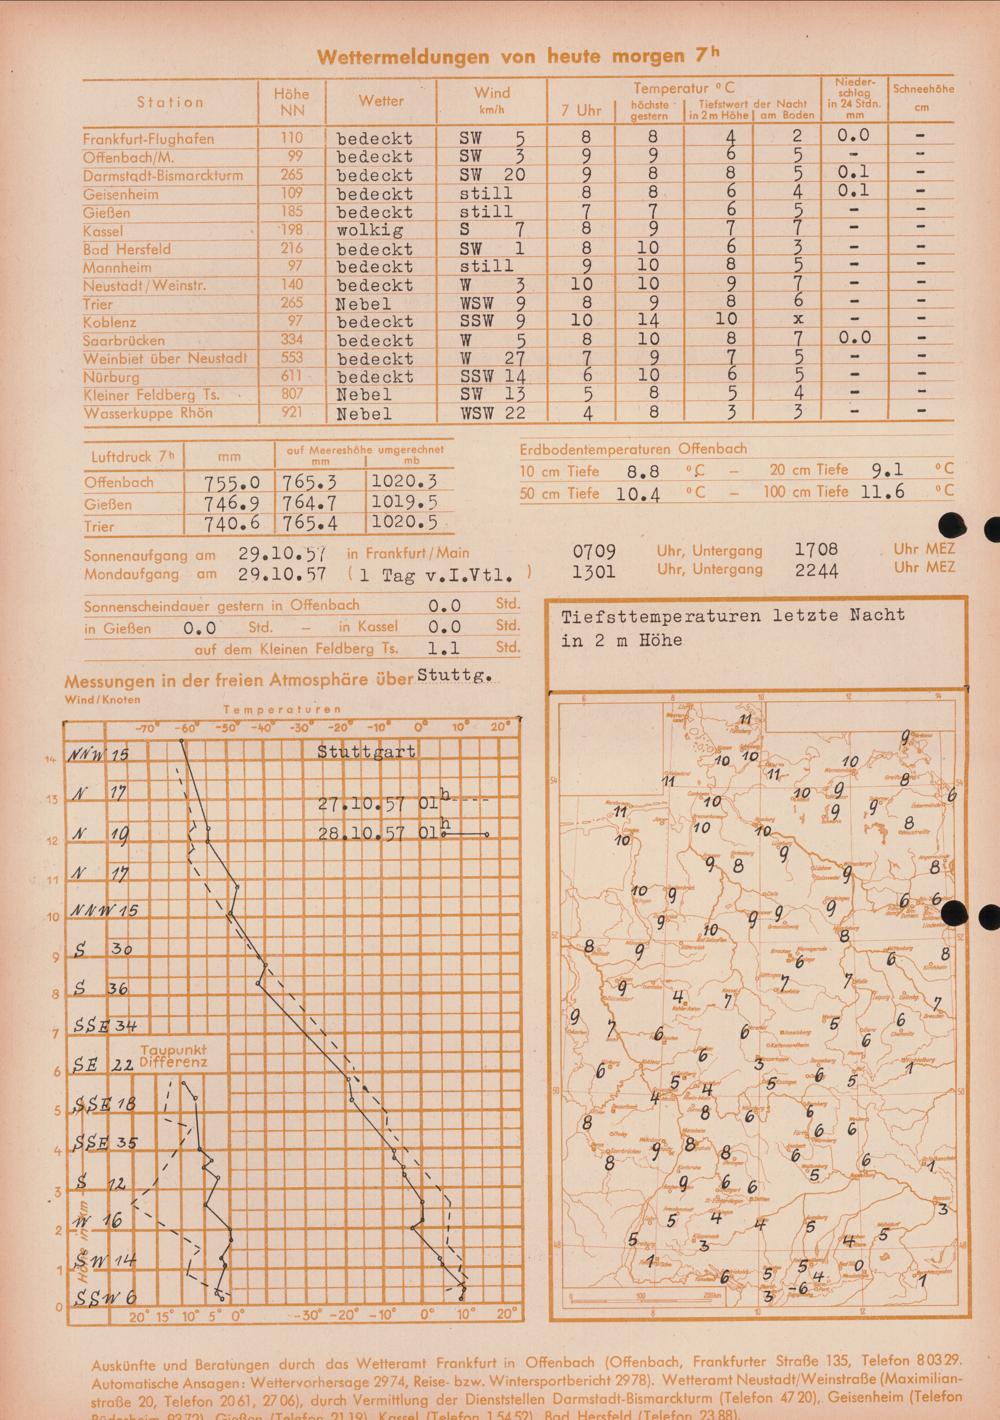 Wettermeldungen von heute morgen 7h
Station Höhe NN Wetter Wind km/h Temperatur °C Nieder-schlag in 24 Stdn. mm Schneehöhe cm
7 Uhr höchste gestern Tiefstwert der Nacht in 2m Höhe am Boden
Frankfurt-Flughafen 110 bedeckt SW 5 8 8 4 2 0.0 –
Offenbach/M. 99 bedeckt SW 3 9 9 6 5 – –
Darmstadt-Bismarckturm 265 bedeckt SW 20 9 8 8 5 0.1 –
Geisenheim 109 bedeckt still 8 8 6 4 0.1 –
Gießen 185 bedeckt still 7 7 6 5 – –
Kassel 198 wolkig S 7 8 9 7 7 – –
Bad Hersfeld 216 bedeckt SW 1 8 10 6 3 – –
Mannheim 97 bedeckt still 9 10 8 5 – –
Neustadt/Weinstr. 140 bedeckt W 3 10 10 9 7 – –
Trier 265 Nebel WSW 9 8 9 8 6 – –
Koblenz 97 bedeckt SSW 9 10 14 10 x – –
Saarbrücken 334 bedeckt W 5 8 10 8 7 0.0 –
Weinbiet über Neustadt 553 bedeckt W 27 7 9 7 5 – –
Nürburg 611 bedeckt SSW 14 6 10 6 5 – –
Kleiner Feldberg Ts. 807 Nebel SW 13 5 8 5 4 – –
Wasserkuppe Rhön 921 Nebel WSW 22 4 8 3 3 – –
Luftdruck 7h mm auf Meereshöhe umgerechnet mm mb
Offenbach 755.0 765.3 1020.3
Gießen 746.9 764.7 1019.5
Trier 740.6 765.4 1020.5
Erdbodentemperaturen Offenbach
10 cm Tiefe 8.8 °C – 20 cm Tiefe 9.1 °C
50 cm Tiefe 10.4 °C – 100 cm Tiefe 11.6 °C
Sonnenaufgang am 29.10.57 in Frankfurt/Main 0709 Uhr, Untergang 1708 Uhr MEZ
Mondaufgang am 29.10.57 (1 Tag v.I.Vtl.) 1301 Uhr, Untergang 2244 Uhr MEZ
Sonnenscheindauer gestern in Offenbach 0.0 Std.
in Gießen 0.0 Std. – in Kassel 0.0 Std.
auf dem Kleinen Feldberg Ts. 1.1 Std.
Messungen in der freien Atmosphäre über Stuttg.
Wind/Knoten
Temperaturen
-70° -60° -50° -40° -30° -20° -10° 0° 10° 20°
Stuttgart
27.10.57 01h
28.10.57 01h
14 NNW 15
13 N 17
12 N 19
11 N 17
10 NNW 15
9 S 30
8 S 36
7 SSE 34
6 SE 22
Taupunkt
Differenz
5 SSE 18
4 SSE 35
3 S 12
2 W 16
1 SW 14
0 SSW 6
Höhe in km
20° 15° 10° 5° 0° -30° -20° -10° 0° 10° 20°
Tiefsttemperaturen letzte Nacht
in 2 m Höhe
6 8 10 12 14
11 9
10 10 10
11 11 8
10 9 6
11 10 9 9
10 10 10 8
9 8 9 9 8
10 9 6 6
9 9 9 9
10 8
8 9 6 6 8
9 4 7 7 7 7
9 7 6 6 5 6
6 6 3 6 6 5 1
5 4 4 5
8 8 6 6 6 6
8 9 8 8 6 6 1
9 6 6 5
5 4 4 5 3
5 1 3 4 5
6 5 5 4 0 1
3 -6
Auskünfte und Beratungen durch das Wetteramt Frankfurt in Offenbach (Offenbach, Frankfurter Straße 135, Telefon 8 03 29.
Automatische Ansagen: Wettervorhersage 2974, Reise- bzw. Wintersportbericht 2978). Wetteramt Neustadt/Weinstraße (Maximilian-
straße 20, Telefon 20 61, 27 06), durch Vermittlung der Dienststellen Darmstadt-Bismarckturm (Telefon 47 20), Geisenheim (Telefon
Rüdesheim 9372), Gießen (Telefon 21 19), Kassel (Telefon 1 54 52), Bad Hersfeld (Telefon 23 88).